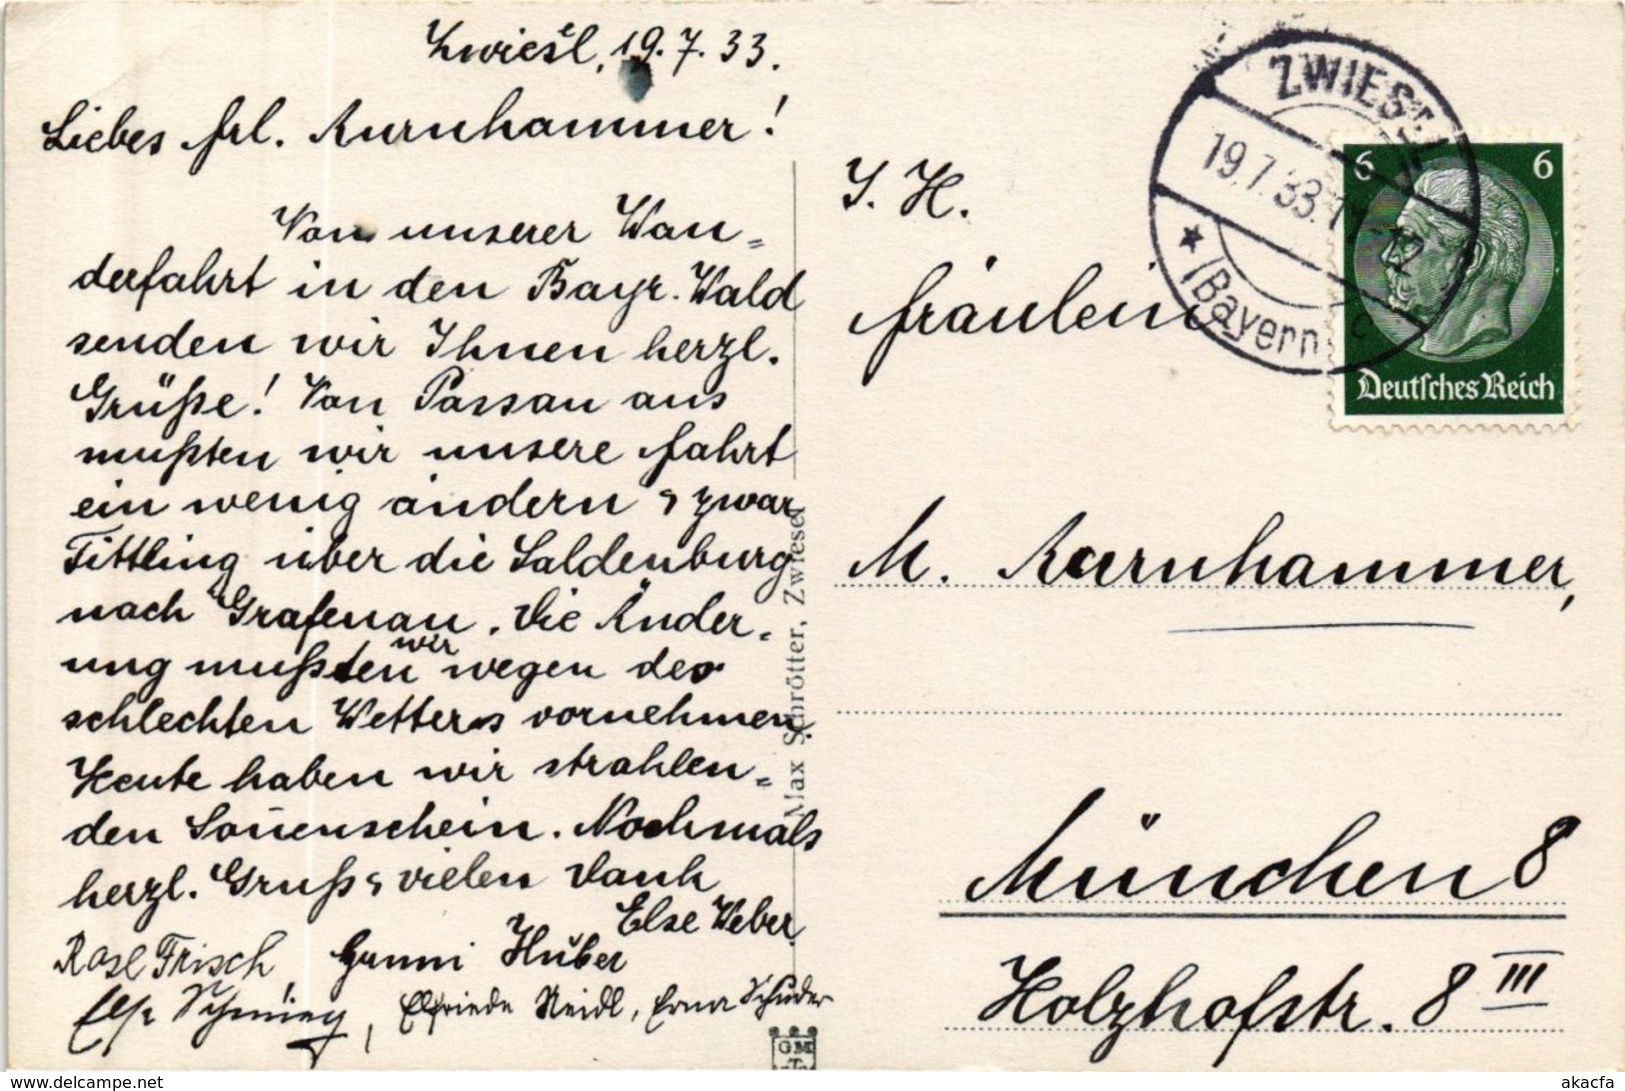 Zwiesl, 19.7.33.
Liebes Frl. Aurnhammer!
Von unserer Wan=
derfahrt in den Bayr. Wald
senden wir Ihnen herzl.
Grüße! Von Passau aus
mußten wir unsere Fahrt
ein wenig ändern u zwar
Tittling über die Saldenburg
nach Grafenau. Die Änder=
ung mußten wir wegen des
schlechten Wetters vornehmen
Heute haben wir strahlen=
den Soñenschein. Nochmals
herzl. Gruß u vielen Dank
Else Weber
Rosl Frisch Gunni Huber
Else, Elfriede Neidl, Erna Schuder
Max Schrötter, Zwiesel
GM
T
ZWIESEL
19.7.33.11-12
* (Bayern) c
6 6
Deutsches Reich
I. H.
Fräulein
M. Aurnhammer,
München 8
Holzhofstr. 8 III
www.delcampe.net
akacfa